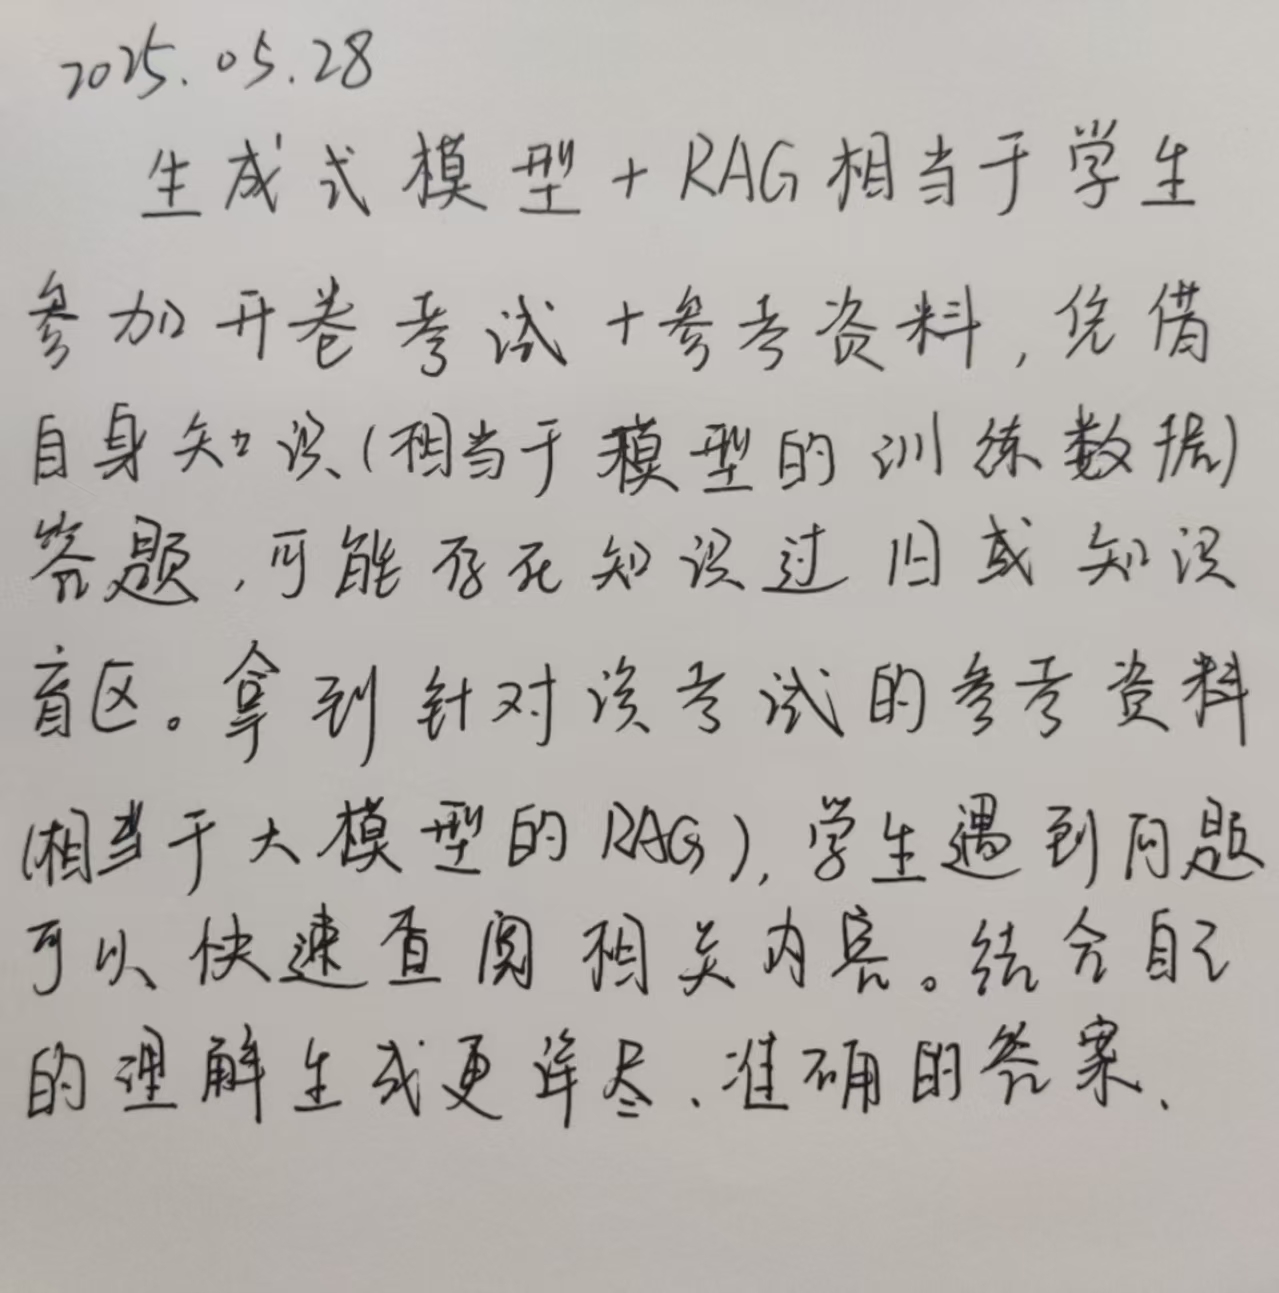 2025.05.28
生成式模型+RAG相当于学生
参加开卷考试+参考资料,凭借
自身知识(相当于模型的训练数据)
答题,可能存在知识过旧或知识
盲区。拿到针对该考试的参考资料
(相当于大模型的RAG),学生遇到问题
可以快速查阅相关内容。结合自己
的理解生成更详尽、准确的答案.